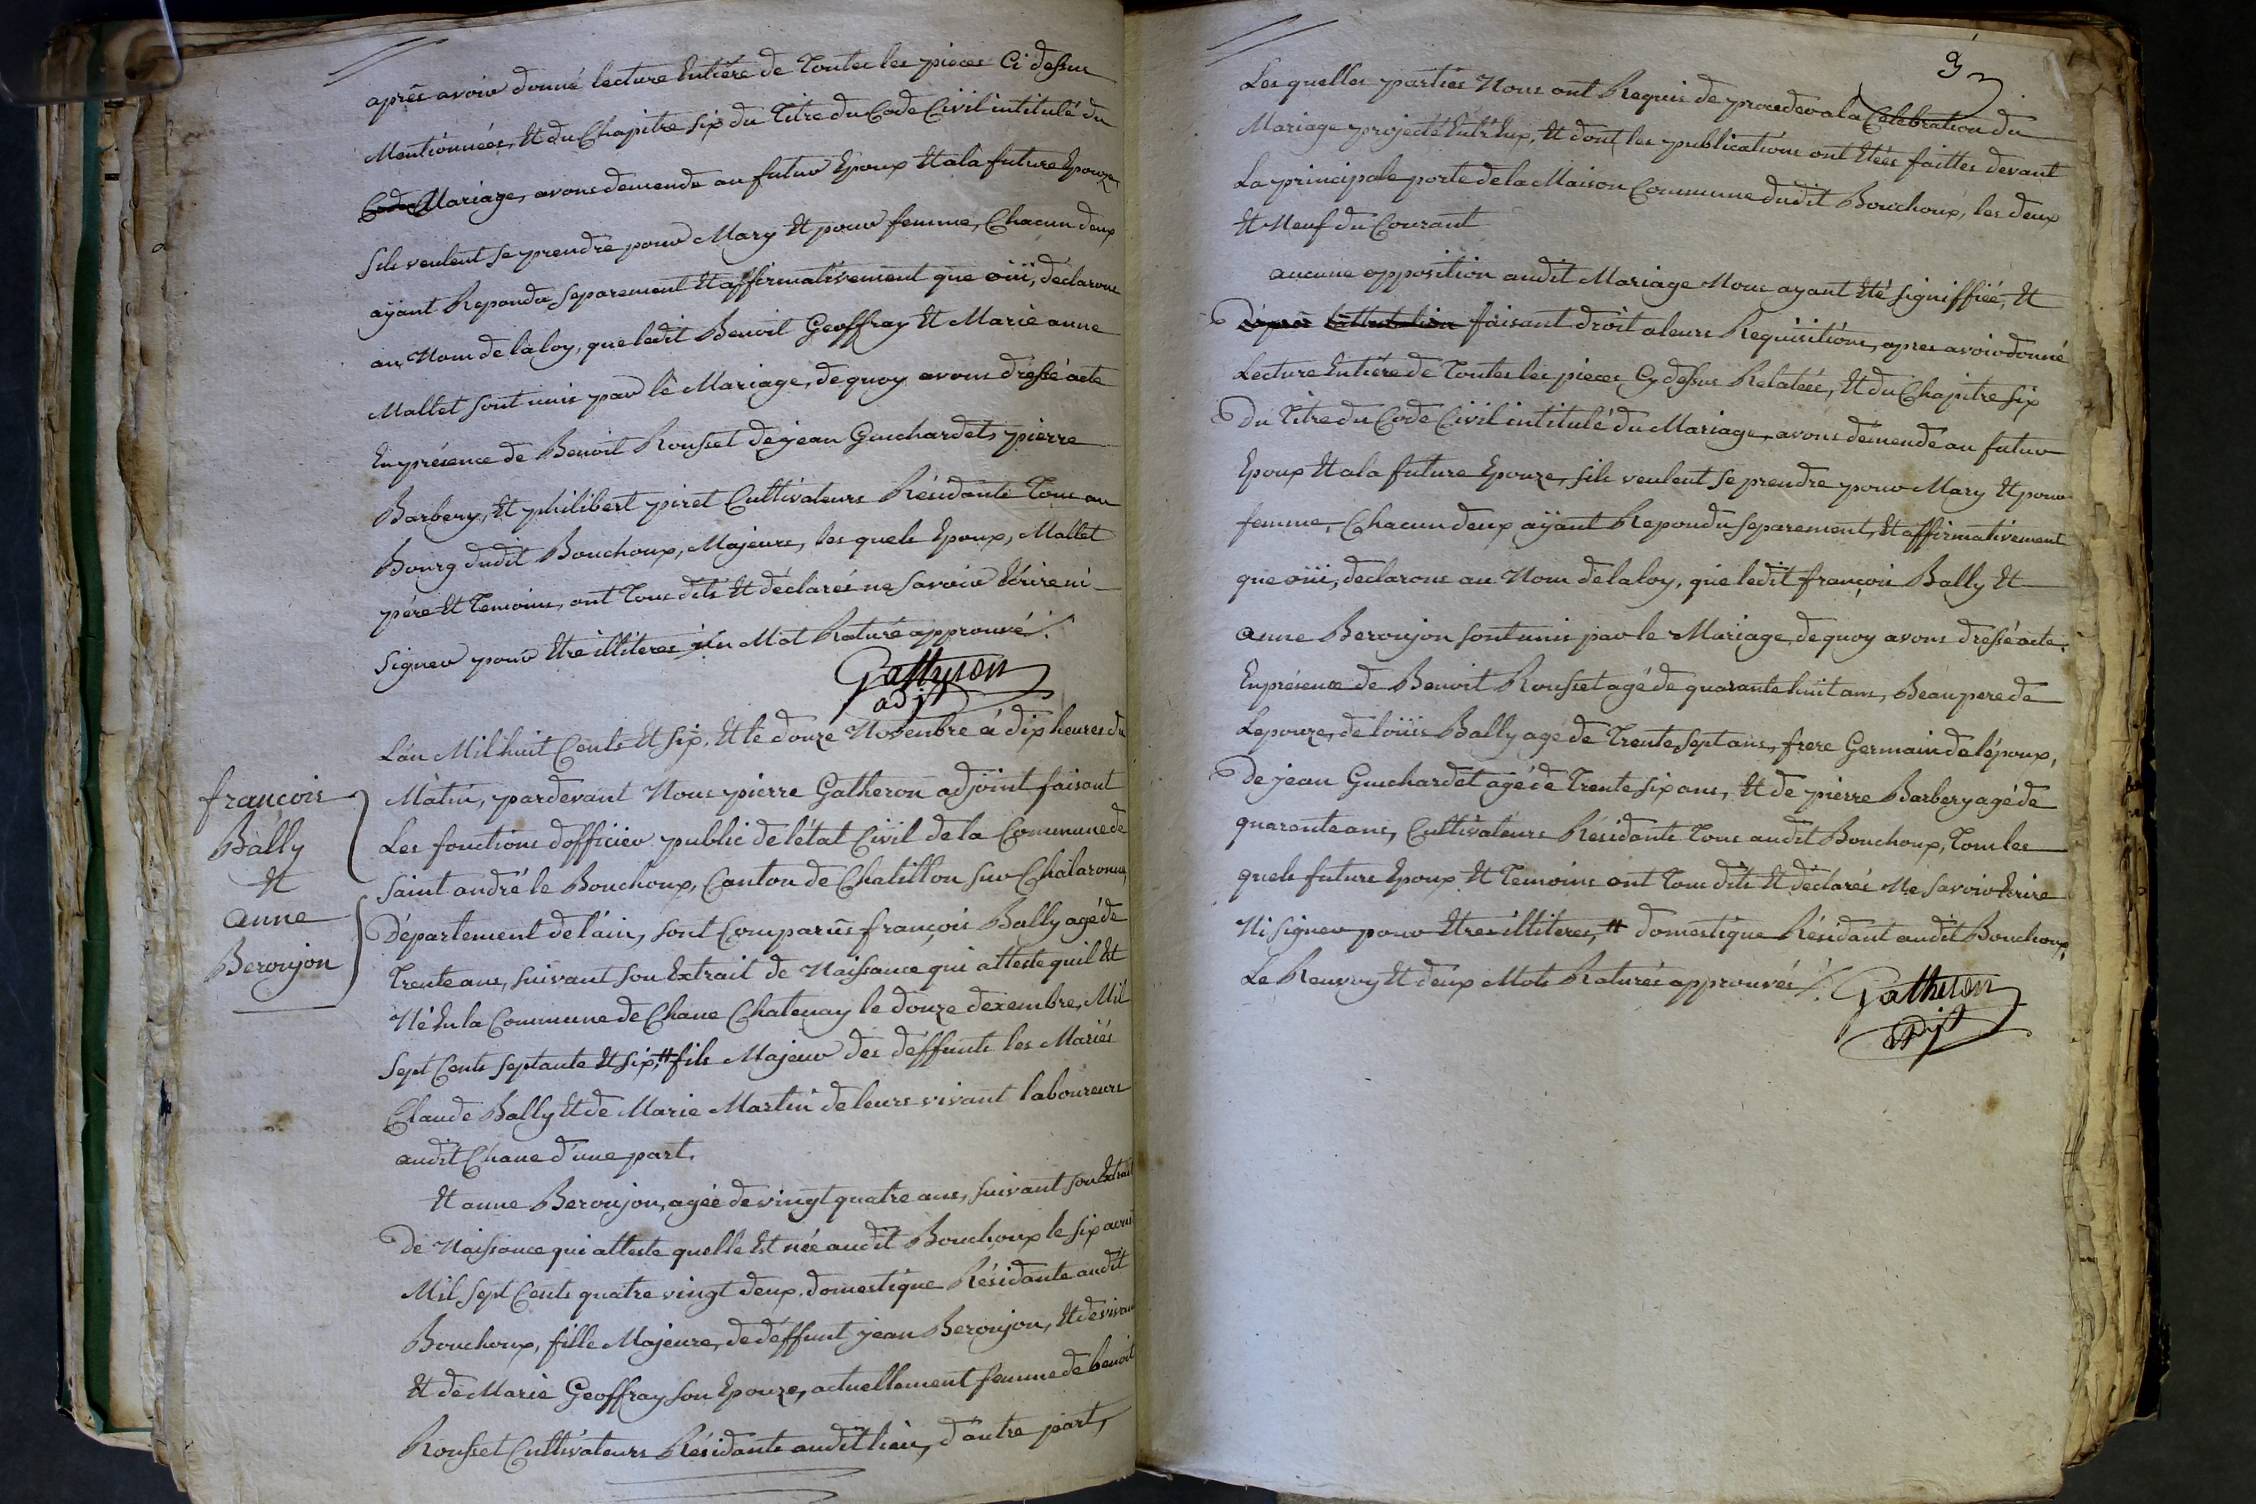 après avoir donné lecture Entière de Toutes les pieces Ci dessus
Mentionnées, Et du Chapitre six du Titre du Code Civil intitulé du
Mariage, avons demende au futur Epoux Et ala future Epouze
sils veulent se prendre pour Mary Et pour femme, Chacun deux
ayant Repondu separement Et affirmativement que oüi, déclarons
au Nom de la loy, que ledit Benoit Geoffray Et Marie anne
Mallet sont unis par le Mariage, de quoy avons dréssé acte
En présence de Benoit Rousset de jean Guichardet, pierre
Barbery, Et philibert piret Cultivateurs Résidants Tous au
Bourg dudit Bouchoux, Majeurs, les quels Epoux, Mallet
père Et Temoins, ont Tous dits Et déclarés ne savoir Ecrire ni
signer pour Etre illiteres un Mot Raturé approuvé
Gatheron
adjt
Lan Mil huit Cents Et six, Et le douze Novembre à dix heures du
françois
Bally
Et
anne
Beroujon
Matin, pardevant Nous pierre Gatheron adjoint faisant
Les fonctions dofficier public de létat Civil de la Commune de
saint andré le Bouchoux, Canton de Chatillon sur Chalaronne,
Département de lain, sont Comparus françois Bally agé de
Trente ans, suivant son Extrait de Naissance qui atteste quil Est
Né En la Commune de Chane Chatenay le douze dexembre, Mil
sept Cents septante Et six, # fils Majeur des deffunts les Mariés
Claude Bally Et de Marie Martin de leurs vivant laboureurs
audit Chane d'une part.
Et anne Beroujon, agée de vingt quatre ans, suivant son Extrait
de Naissance qui atteste quelle Est née audit Bouchoux le six avril
Mil sept Cents quatre vingt deux, domestique Résidante audit
Bouchoux, fille Majeure, de deffunt jean Beroujon, Et de vivant
Et de Marie Geoffray son Epouze, actuellement femme de benoit
Rousset Cultivateurs Résidants audit lieu, d'autre part,
9
Les quelles parties Nous ont Requis de proceder a la Celebration du
Mariage projecté Entr'Eux, Et dont les publications ont Etées faittes devant
La principale porte de la Maison Commune dudit Bouchoux, les deux
Et Neuf du Courant
aucune opposition audit Mariage Nous ayant Eté signiffiée, Et
faisant droit a leurs Requisitions, apres avoir donné
Lecture Entière de Toutes les pieces Cy dessus Relatées, Et du Chapitre six
Du Titre du Code Civil intitulé du Mariage, avons demendé au futur
Epoux Et ala future Epouze, sils veulent se prendre pour Mary Et pour
femme, Chacun deux ayant Repondu separement, Et affirmativement
que oüi, declarons au Nom de la loy, que ledit françois Bally Et
anne Beroujon sont unis par le Mariage, de quoy avons dressé acte.
En présence de Benoit Rousset agé de quarante huit ans, Beau pere de
Lepouze, de loüis Bally agé de Trente sept ans, frere Germain de lépoux,
De jean Guichardet agé de Trente six ans, Et de pierre Barbery agé de
quarante ans, Cultivateurs Résidants Tous audit Bouchoux, Tous les
quels futurs Epoux Et Temoins ont Tous dits Et déclarés Ne savoir Ecrire
Ni signer pour Etres illiteres, # domestique Résidant audit Bouchoux,
Le Renvoy Et deux Mots Raturés approuvés
Gatheron
adjt